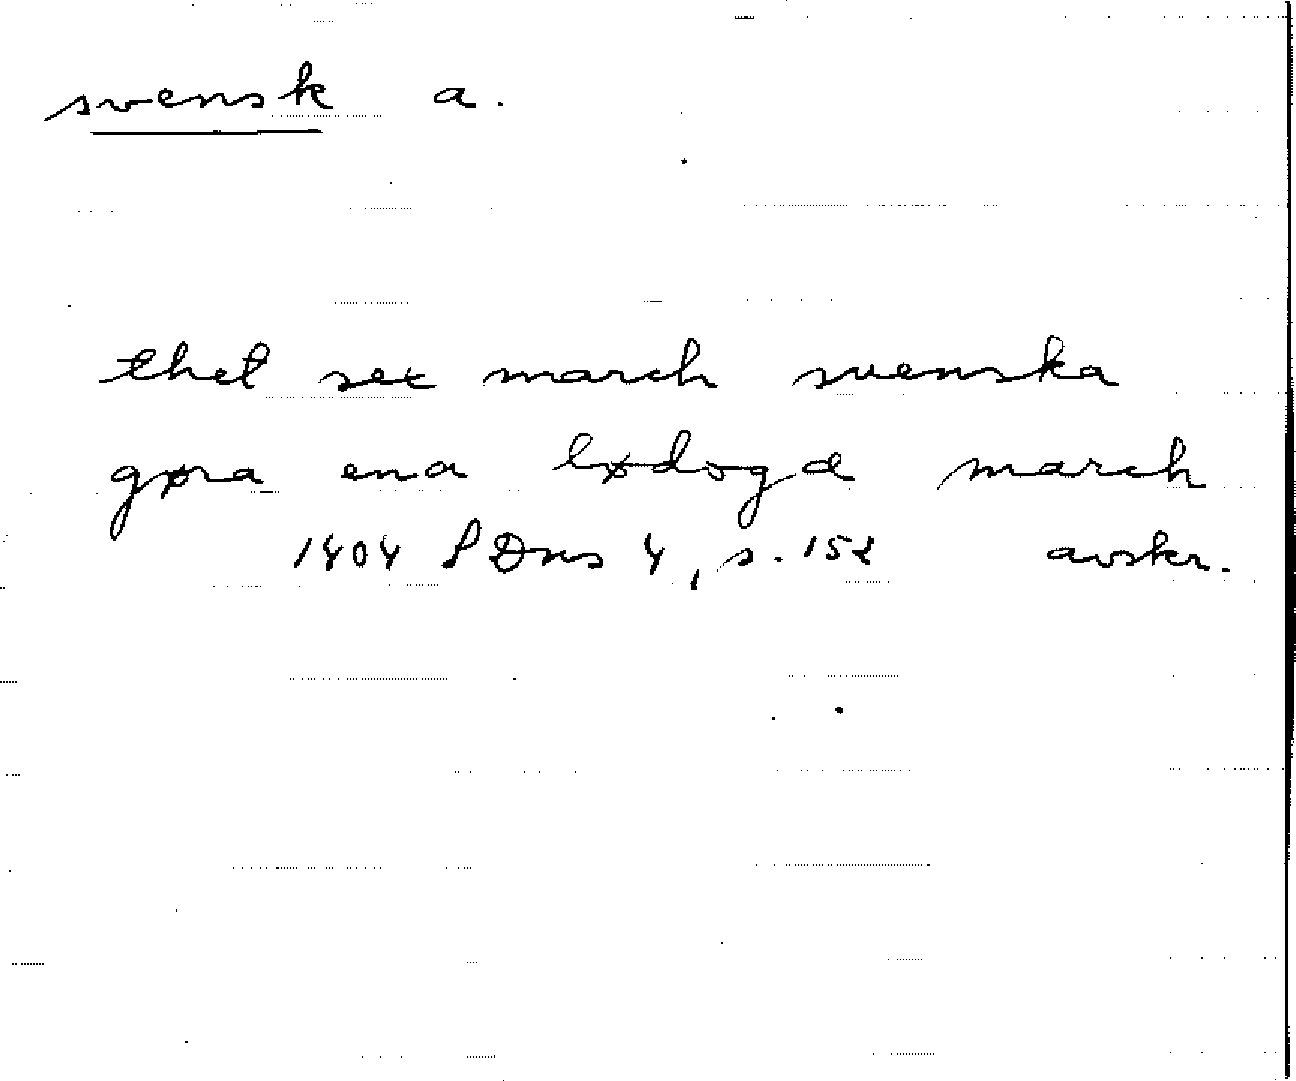 svensk a.
thet sex march svenska
gøra ena lødoga march
1404 SDns 4, s. 152 avskr.